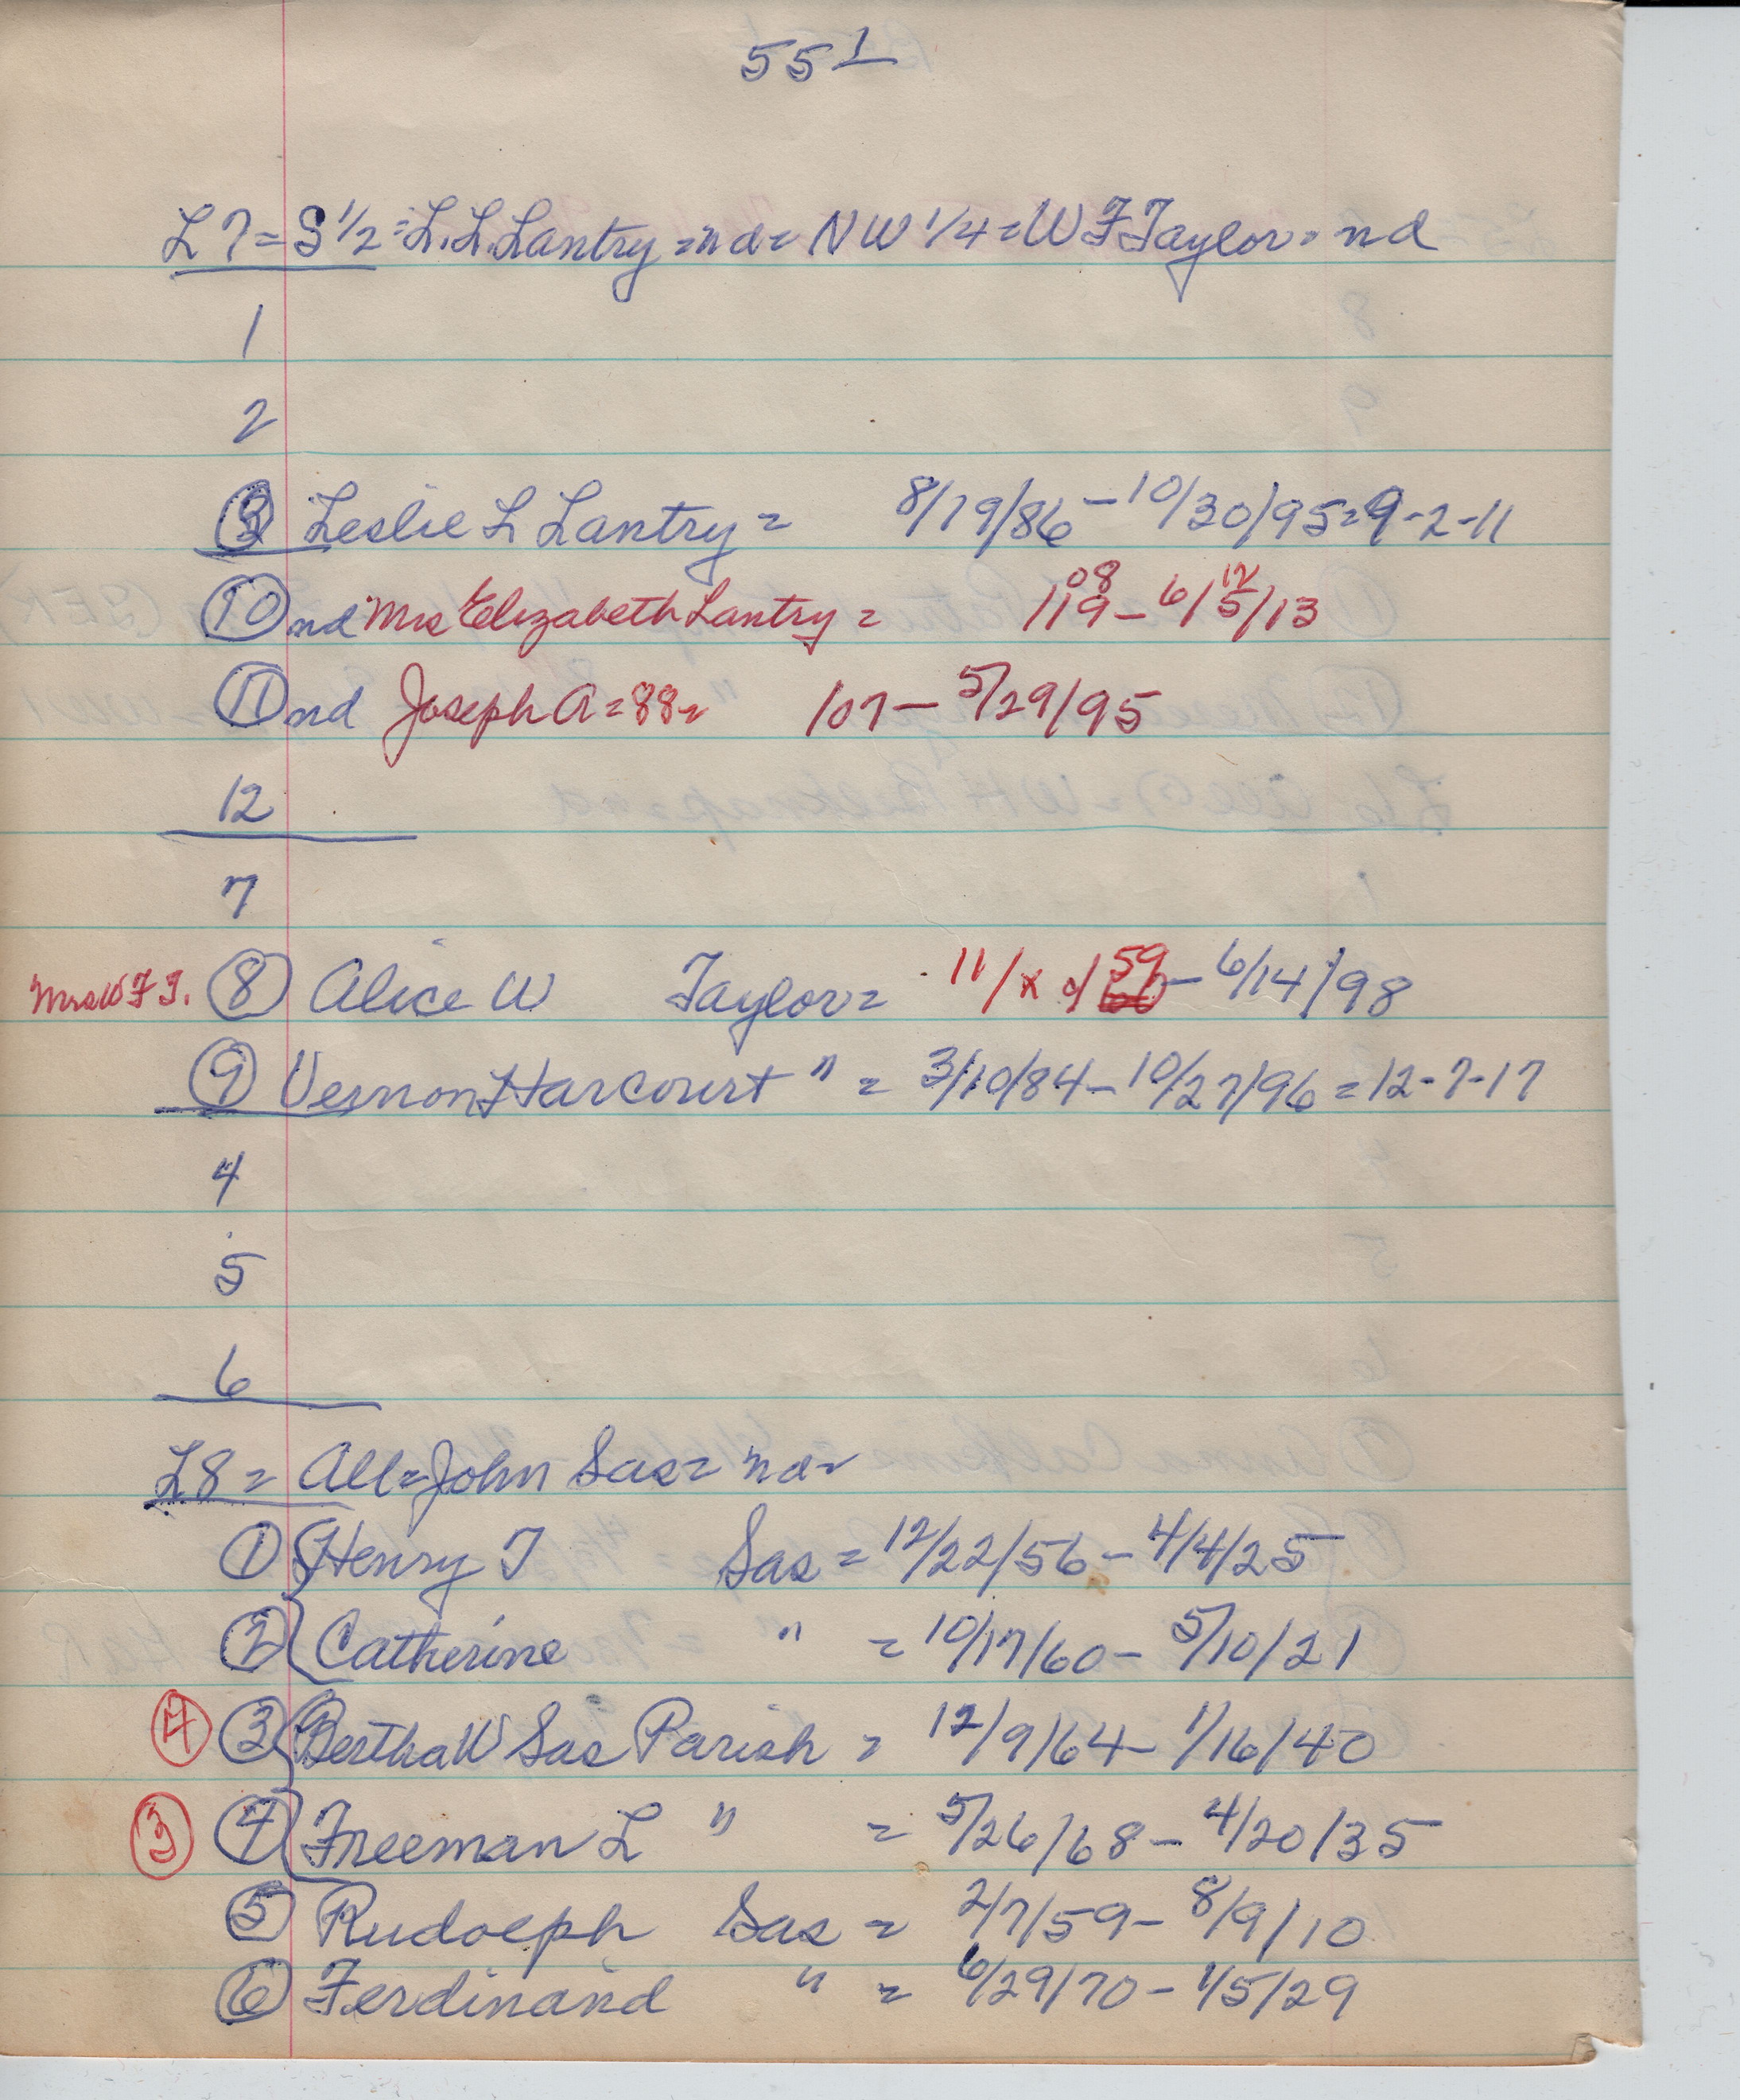 551
L7 = S 1/2 = L.L. Lantry = nd = NW 1/4 = W F Taylor = nd
1
2
3 Leslie L Lantry = 8/19/86 - 10/30/95 = 9-2-11
10 nd Mrs Elizabeth Lantry = 119 08 - 6/5/13 12
11 nd Joseph A = 88 = 107 - 5/29/95
12
7
Mrs W F T. 8 Alice W Taylor = 11/x 59 - 6/14/98
9 Vernon Harcourt " = 3/10/84 - 10/27/96 = 12-7-17
4
5
6
L8 = All = John Sas = nd =
1 Henry T Sas = 12/22/56 - 4/4/25
2 Catherine " = 10/17/60 - 5/10/21
4 3 Bertha W Sas Parish = 12/9/64 - 1/16/40
3 4 Freeman L " = 5/26/68 - 4/20/35
5 Rudolph Sas = 2/7/59 - 8/9/10
6 Ferdinand " = 6/29/70 - 1/5/29